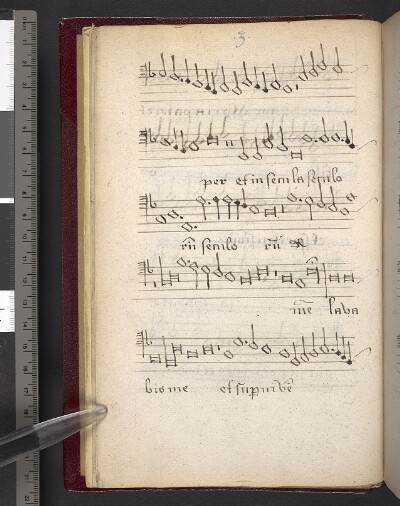 .3.
per et in secula seculo
rū seculo rū
me lava
bis me et sup